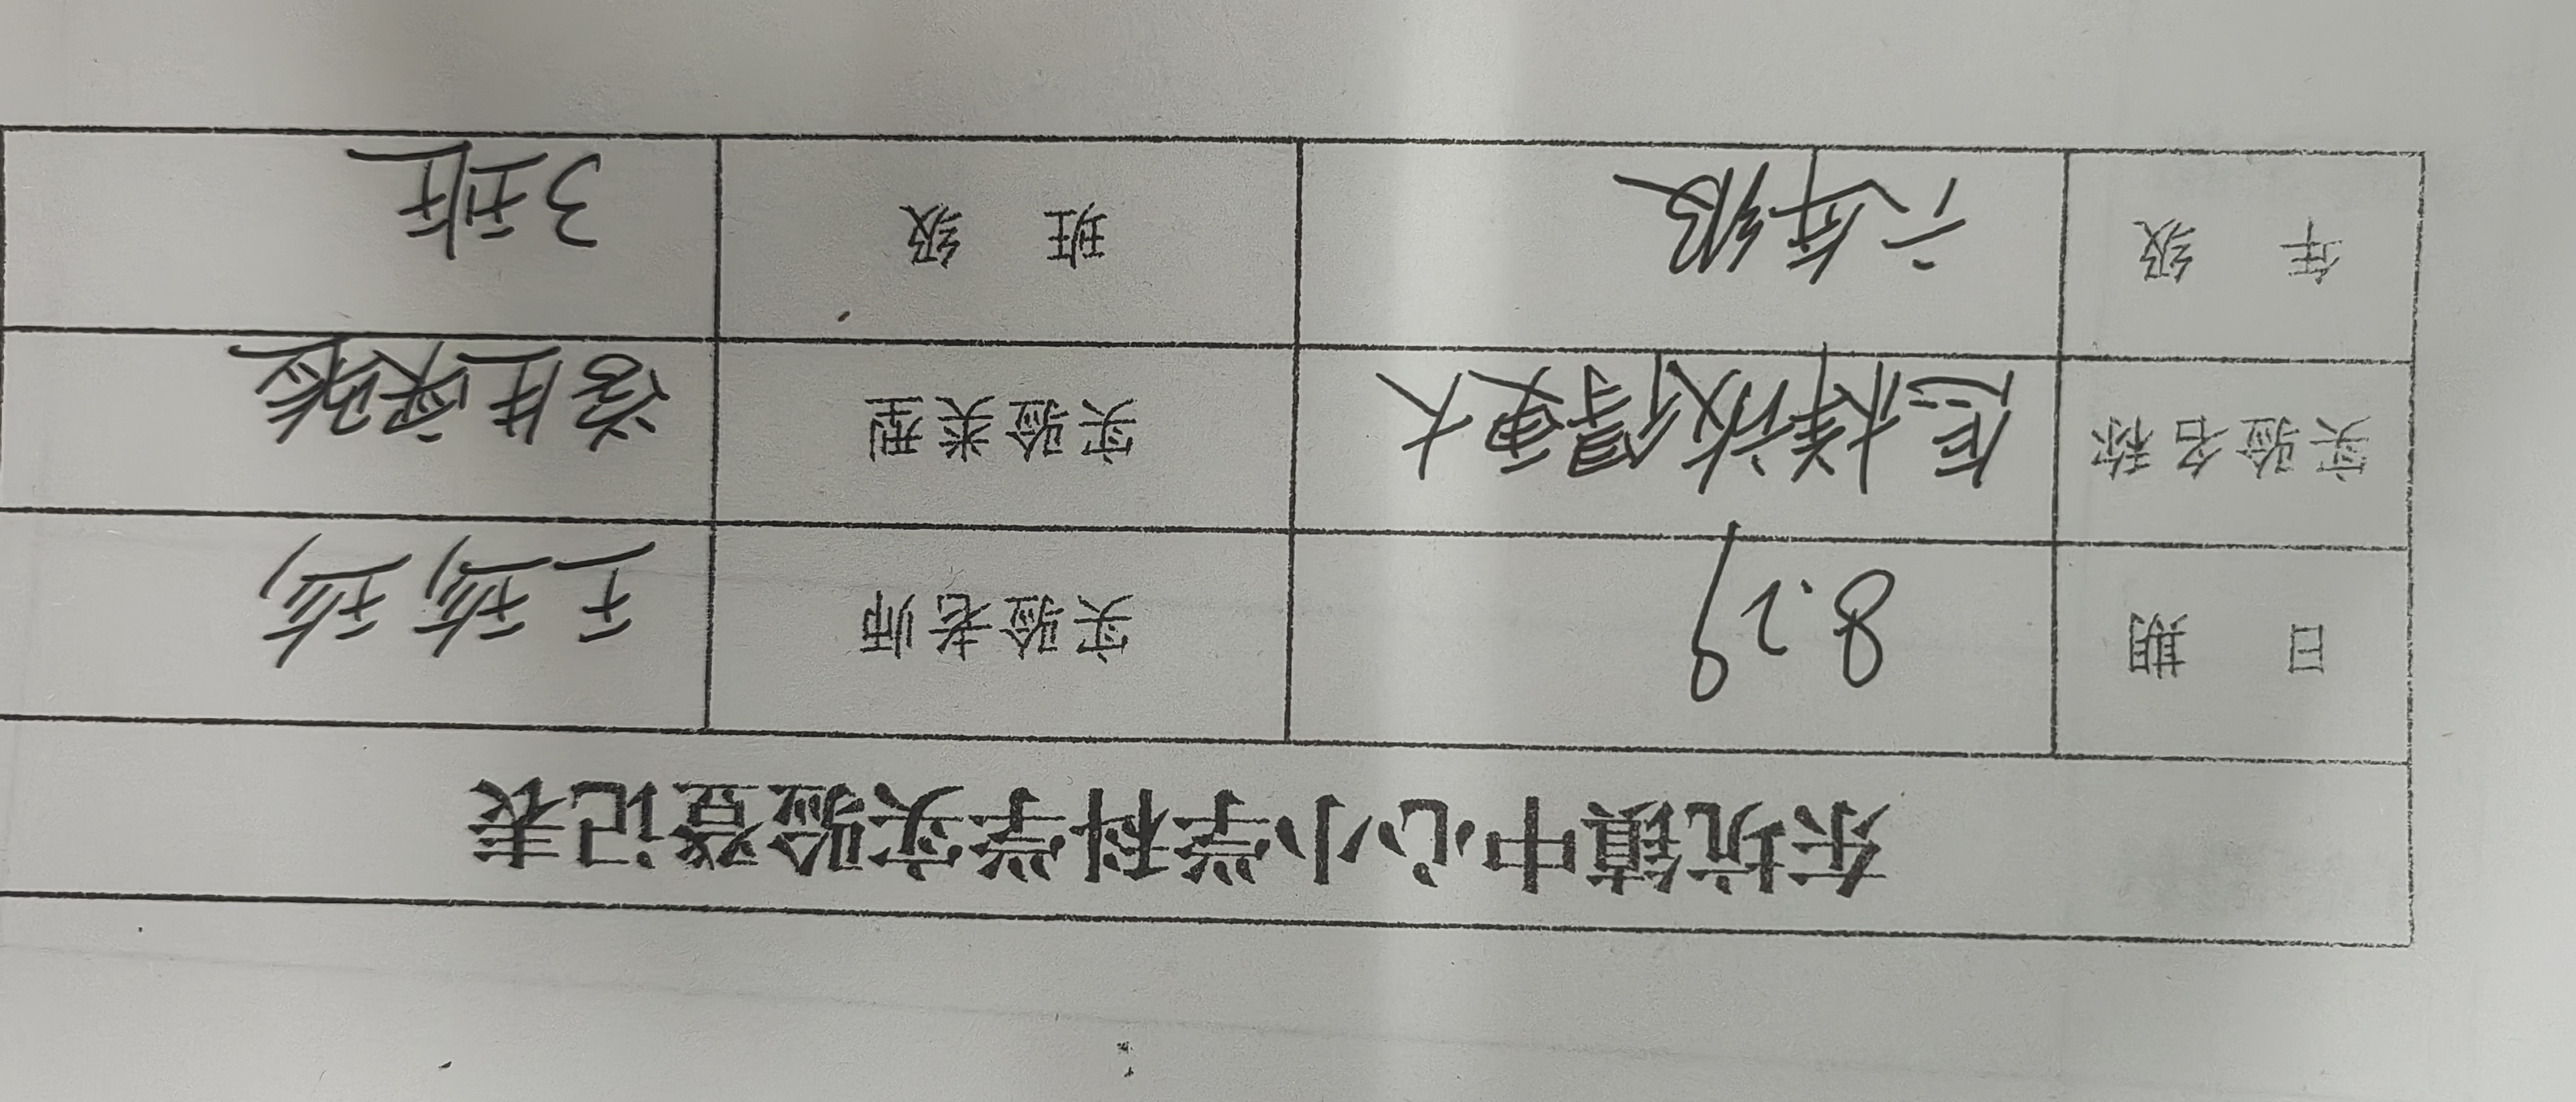 东坑镇中心小学科学实验登记表
日 期 8.29 实验老师 王珍珍
实验名称 怎样放得更大 实验类型 学生实验
年 级 六年级 班 级 3班